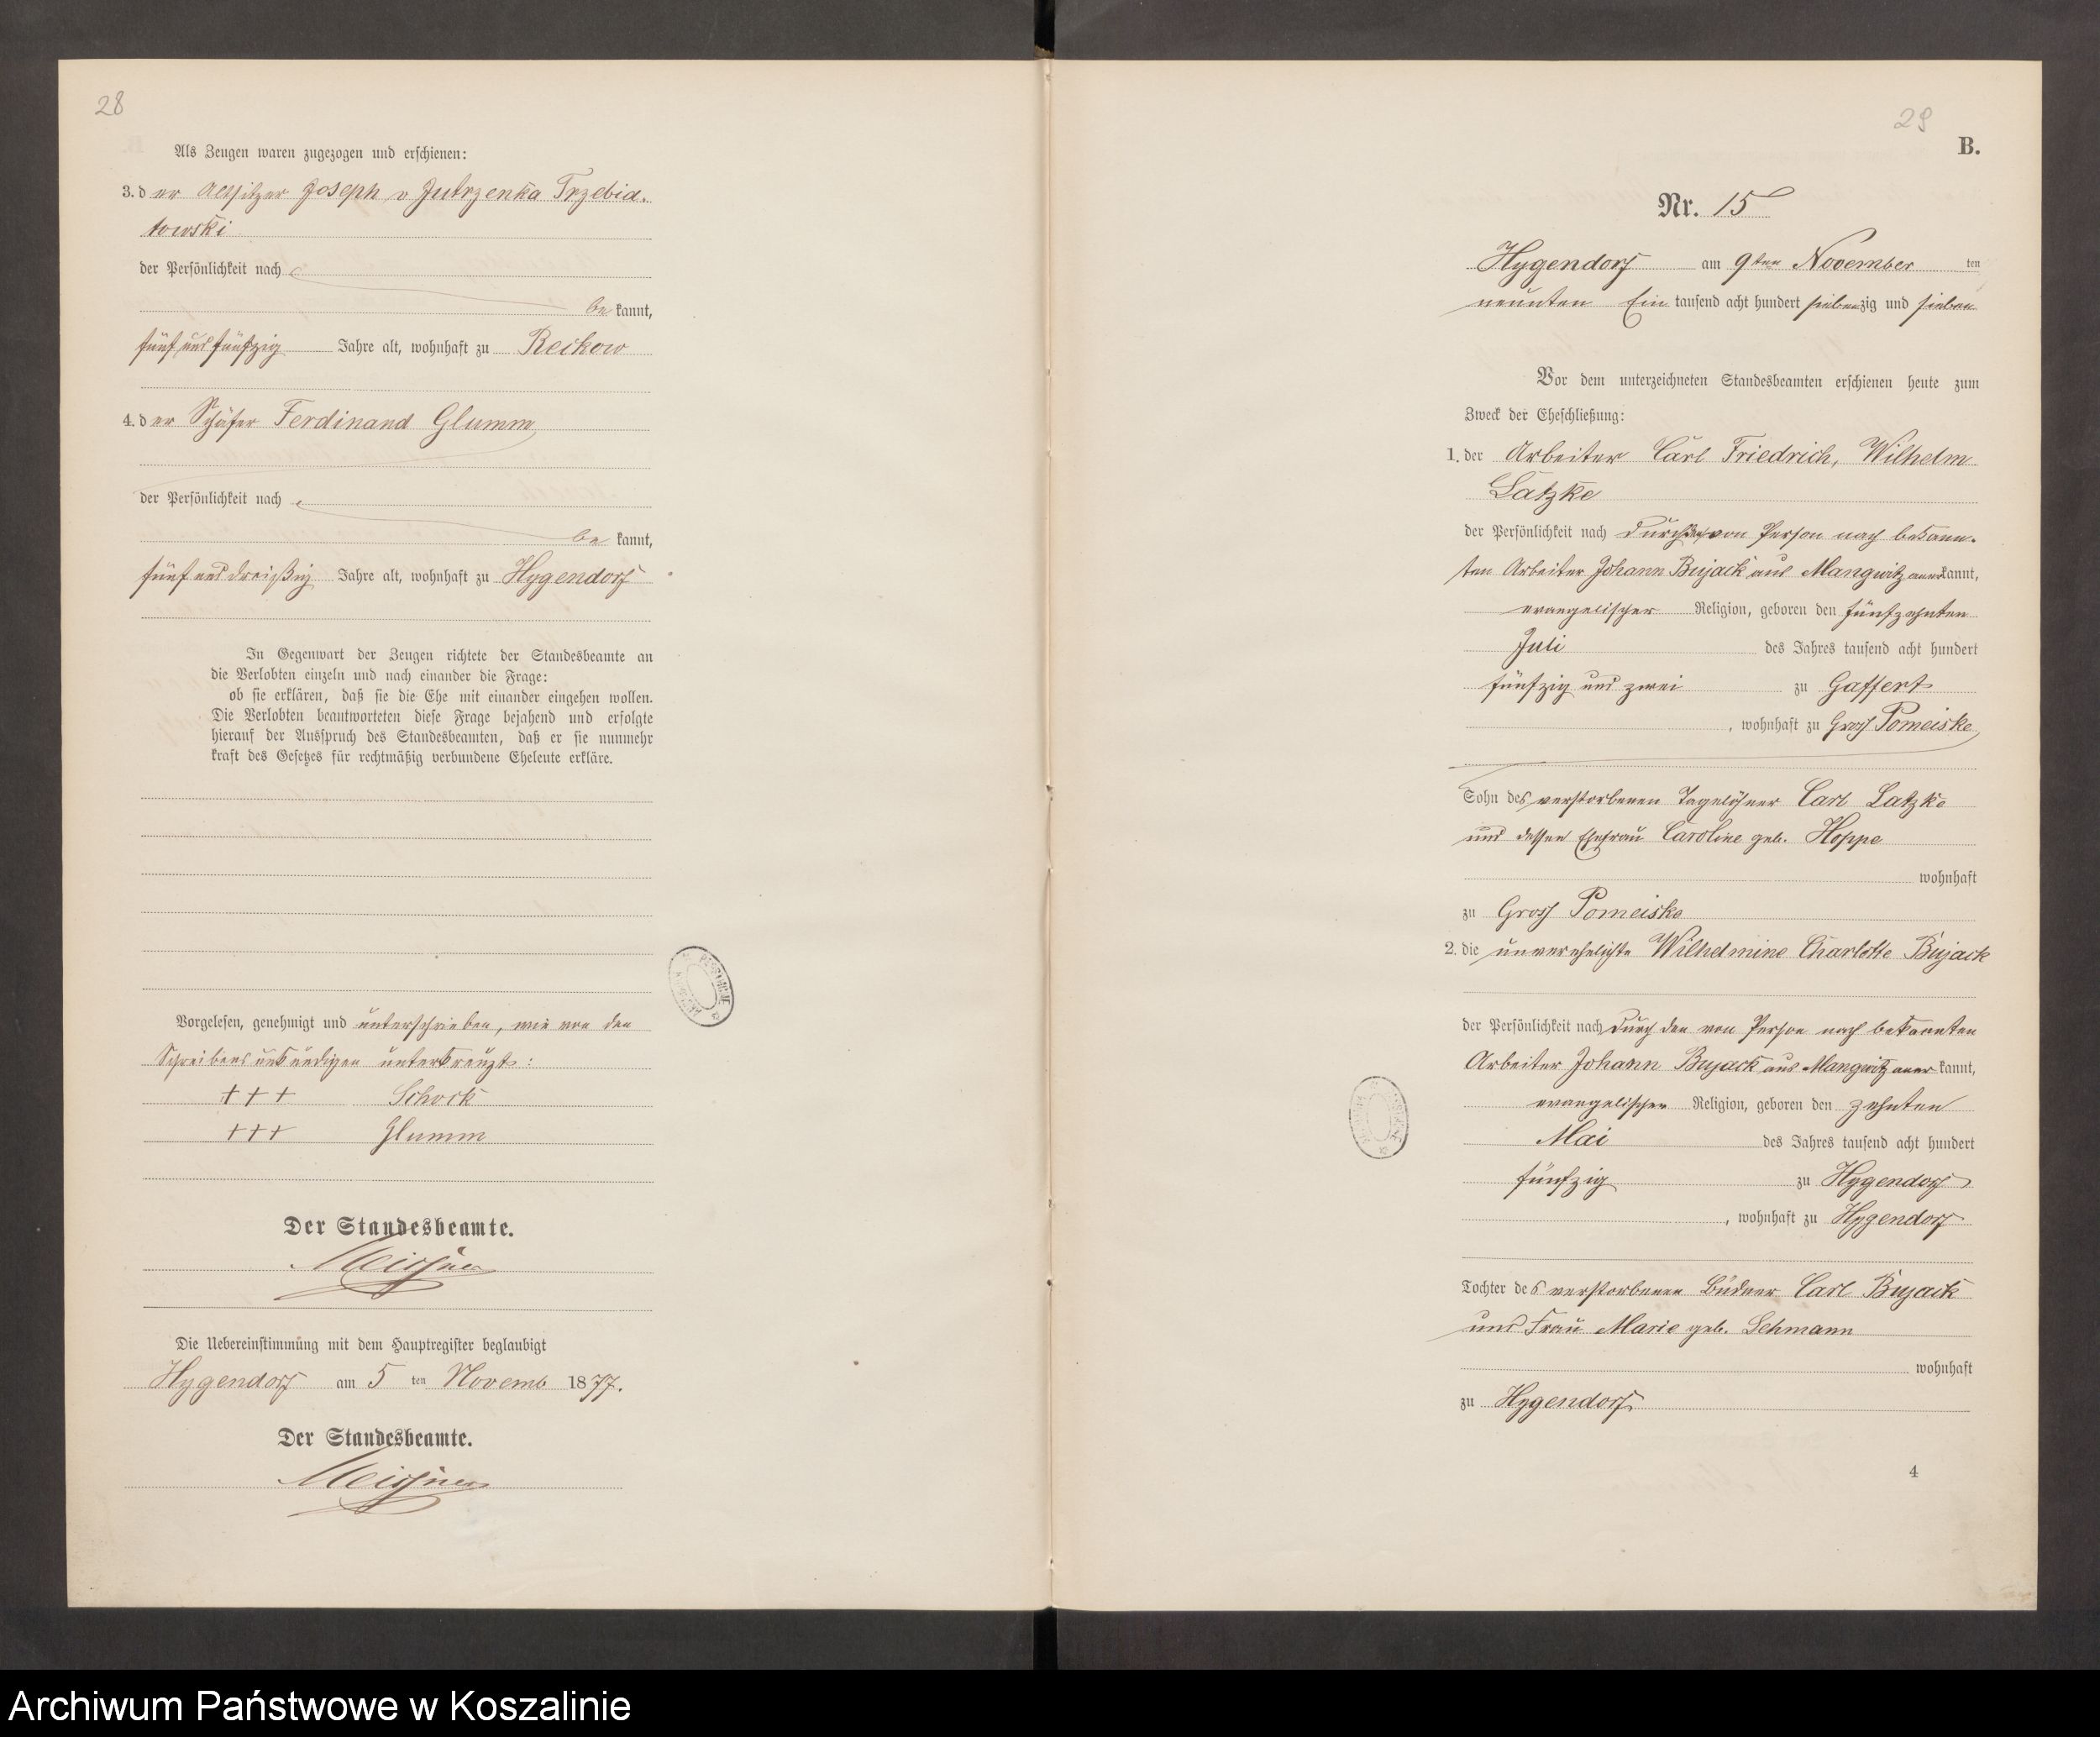 28
Als Zeugen waren zugezogen und erschienen:
3. der Altsitzer Joseph v Jutrzenka Trzebia-
towski
der Persönlichkeit nach
be kannt,
fünf und fünfzig Jahre alt, wohnhaft zu Reckow
4. der Schäfer Ferdinand Glumm
der Persönlichkeit nach
be kannt,
fünf und dreißig Jahre alt, wohnhaft zu Hygendorf
In Gegenwart der Zeugen richtete der Standesbeamte an
die Verlobten einzeln und nach einander die Frage:
ob sie erklären, daß sie die Ehe mit einander eingehen wollen.
Die Verlobten beantworteten diese Frage bejahend und erfolgte
hierauf der Ausspruch des Standesbeamten, daß er sie nunmehr
kraft des Gesetzes für rechtmäßig verbundene Eheleute erkläre.
Vorgelesen, genehmigt und unterschrieben, wie von den
Schreibensunkundigen unterkreuzt:
+++ Schock
+++ Glumm
Der Standesbeamte.
Meissner
Die Uebereinstimmung mit dem Hauptregister beglaubigt
Hygendorf am 5 ten Novemb 1877.
Der Standesbeamte.
Meissner
29
B.
Nr. 15
Hygendorf am 9ten November ten
neunten Ein tausend acht hundert siebenzig und sieben
Vor dem unterzeichneten Standesbeamten erschienen heute zum
Zweck der Eheschließung:
1. der Arbeiter Carl Friedrich, Wilhelm
Latzke
der Persönlichkeit nach durch den von Person nach bekann-
ten Arbeiter Johann Bujack aus Mangwitz anerkannt,
evangelischer Religion, geboren den fünfzehnten
Juli des Jahres tausend acht hundert
fünfzig und zwei zu Gaffert
, wohnhaft zu Gross Pomeiske
Sohn des verstorbenen Tagelöhner Carl Latzke
und dessen Ehefrau Caroline geb. Hoppe
wohnhaft
zu Gross Pomeiske
2. die unverehelichte Wilhelmine Charlotte Bujack
der Persönlichkeit nach durch den von Person nach bekannten
Arbeiter Johann Bujack aus Mangwitz aner kannt,
evangelischer Religion, geboren den zehnten
Mai des Jahres tausend acht hundert
fünfzig zu Hygendorf
, wohnhaft zu Hygendorf
Tochter des verstorbenen Büdner Carl Bujack
und Frau Marie geb. Lehmann
wohnhaft
zu Hygendorf
4
Archiwum Państwowe w Koszalinie